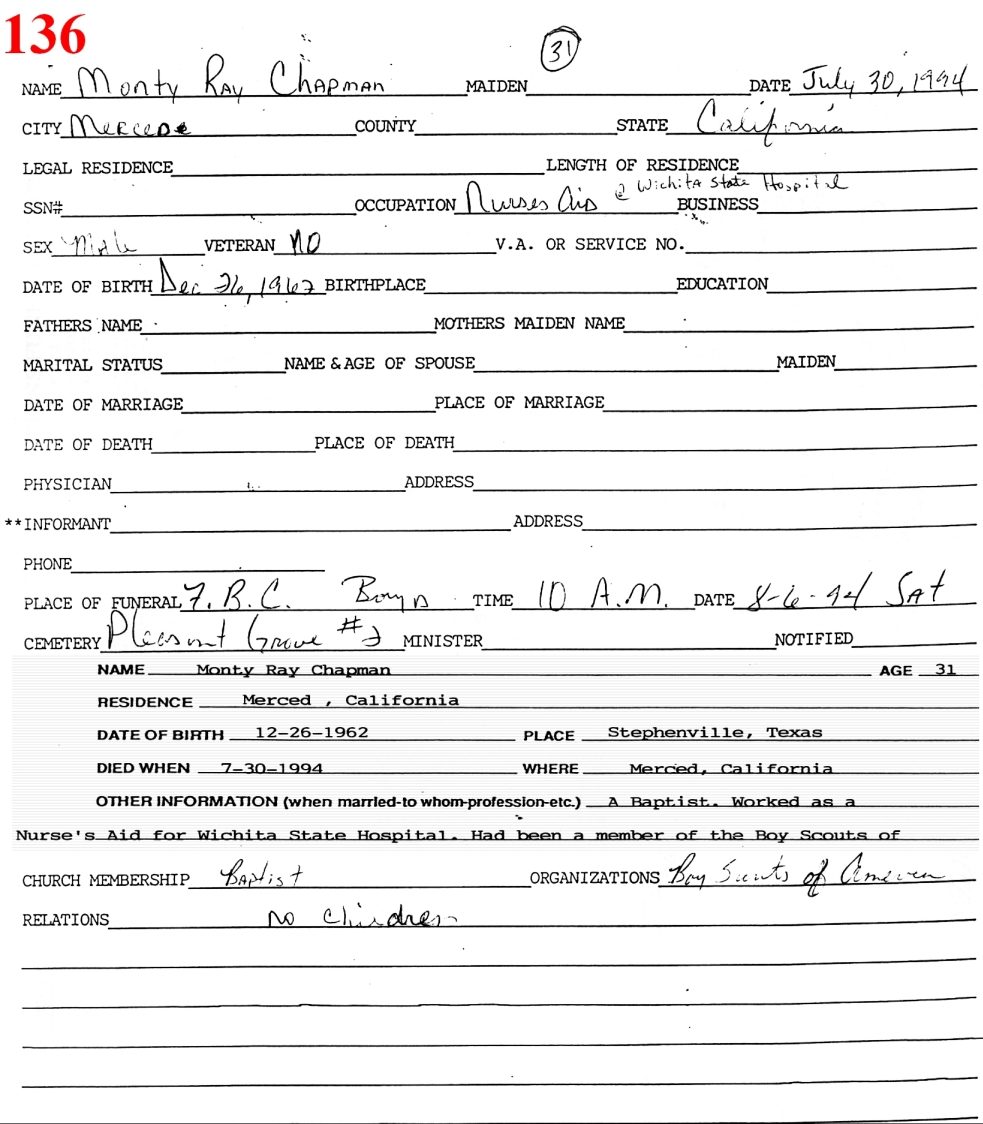 136
31
NAME Monty Ray Chapman MAIDEN DATE July 30, 1994
CITY Mercede COUNTY STATE California
LEGAL RESIDENCE LENGTH OF RESIDENCE
SSN# OCCUPATION Nurses Aid @ Wichita State Hospital BUSINESS
SEX Male VETERAN NO V.A. OR SERVICE NO.
DATE OF BIRTH Dec 26, 1962 BIRTHPLACE EDUCATION
FATHERS NAME MOTHERS MAIDEN NAME
MARITAL STATUS NAME & AGE OF SPOUSE MAIDEN
DATE OF MARRIAGE PLACE OF MARRIAGE
DATE OF DEATH PLACE OF DEATH
PHYSICIAN ADDRESS
**INFORMANT ADDRESS
PHONE
PLACE OF FUNERAL F. B. C. TIME 10 A.M. DATE 8-6-94 SAT
CEMETERY Pleasant Grove #2 MINISTER NOTIFIED
NAME Monty Ray Chapman AGE 31
RESIDENCE Merced , California
DATE OF BIRTH 12-26-1962 PLACE Stephenville, Texas
DIED WHEN 7-30-1994 WHERE Merced, California
OTHER INFORMATION (when married-to whom-profession-etc.) A Baptist. Worked as a
Nurse's Aid for Wichita State Hospital. Had been a member of the Boy Scouts of
CHURCH MEMBERSHIP Baptist ORGANIZATIONS Boy Scouts of America
RELATIONS No Children